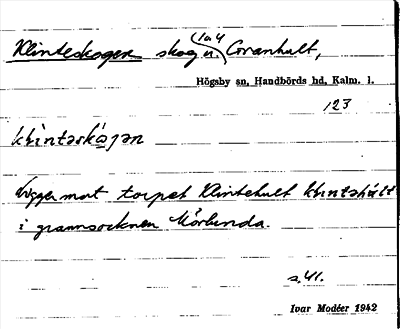 Klinteskogen skog u. (1:4) Granhult,
Högsby sn, Handbörds hd, Kalm. l.
123
Ligger mot torpet Klintehult
i grannsocknen Mörlunda.
s. 41.
Ivar Modéer 1942